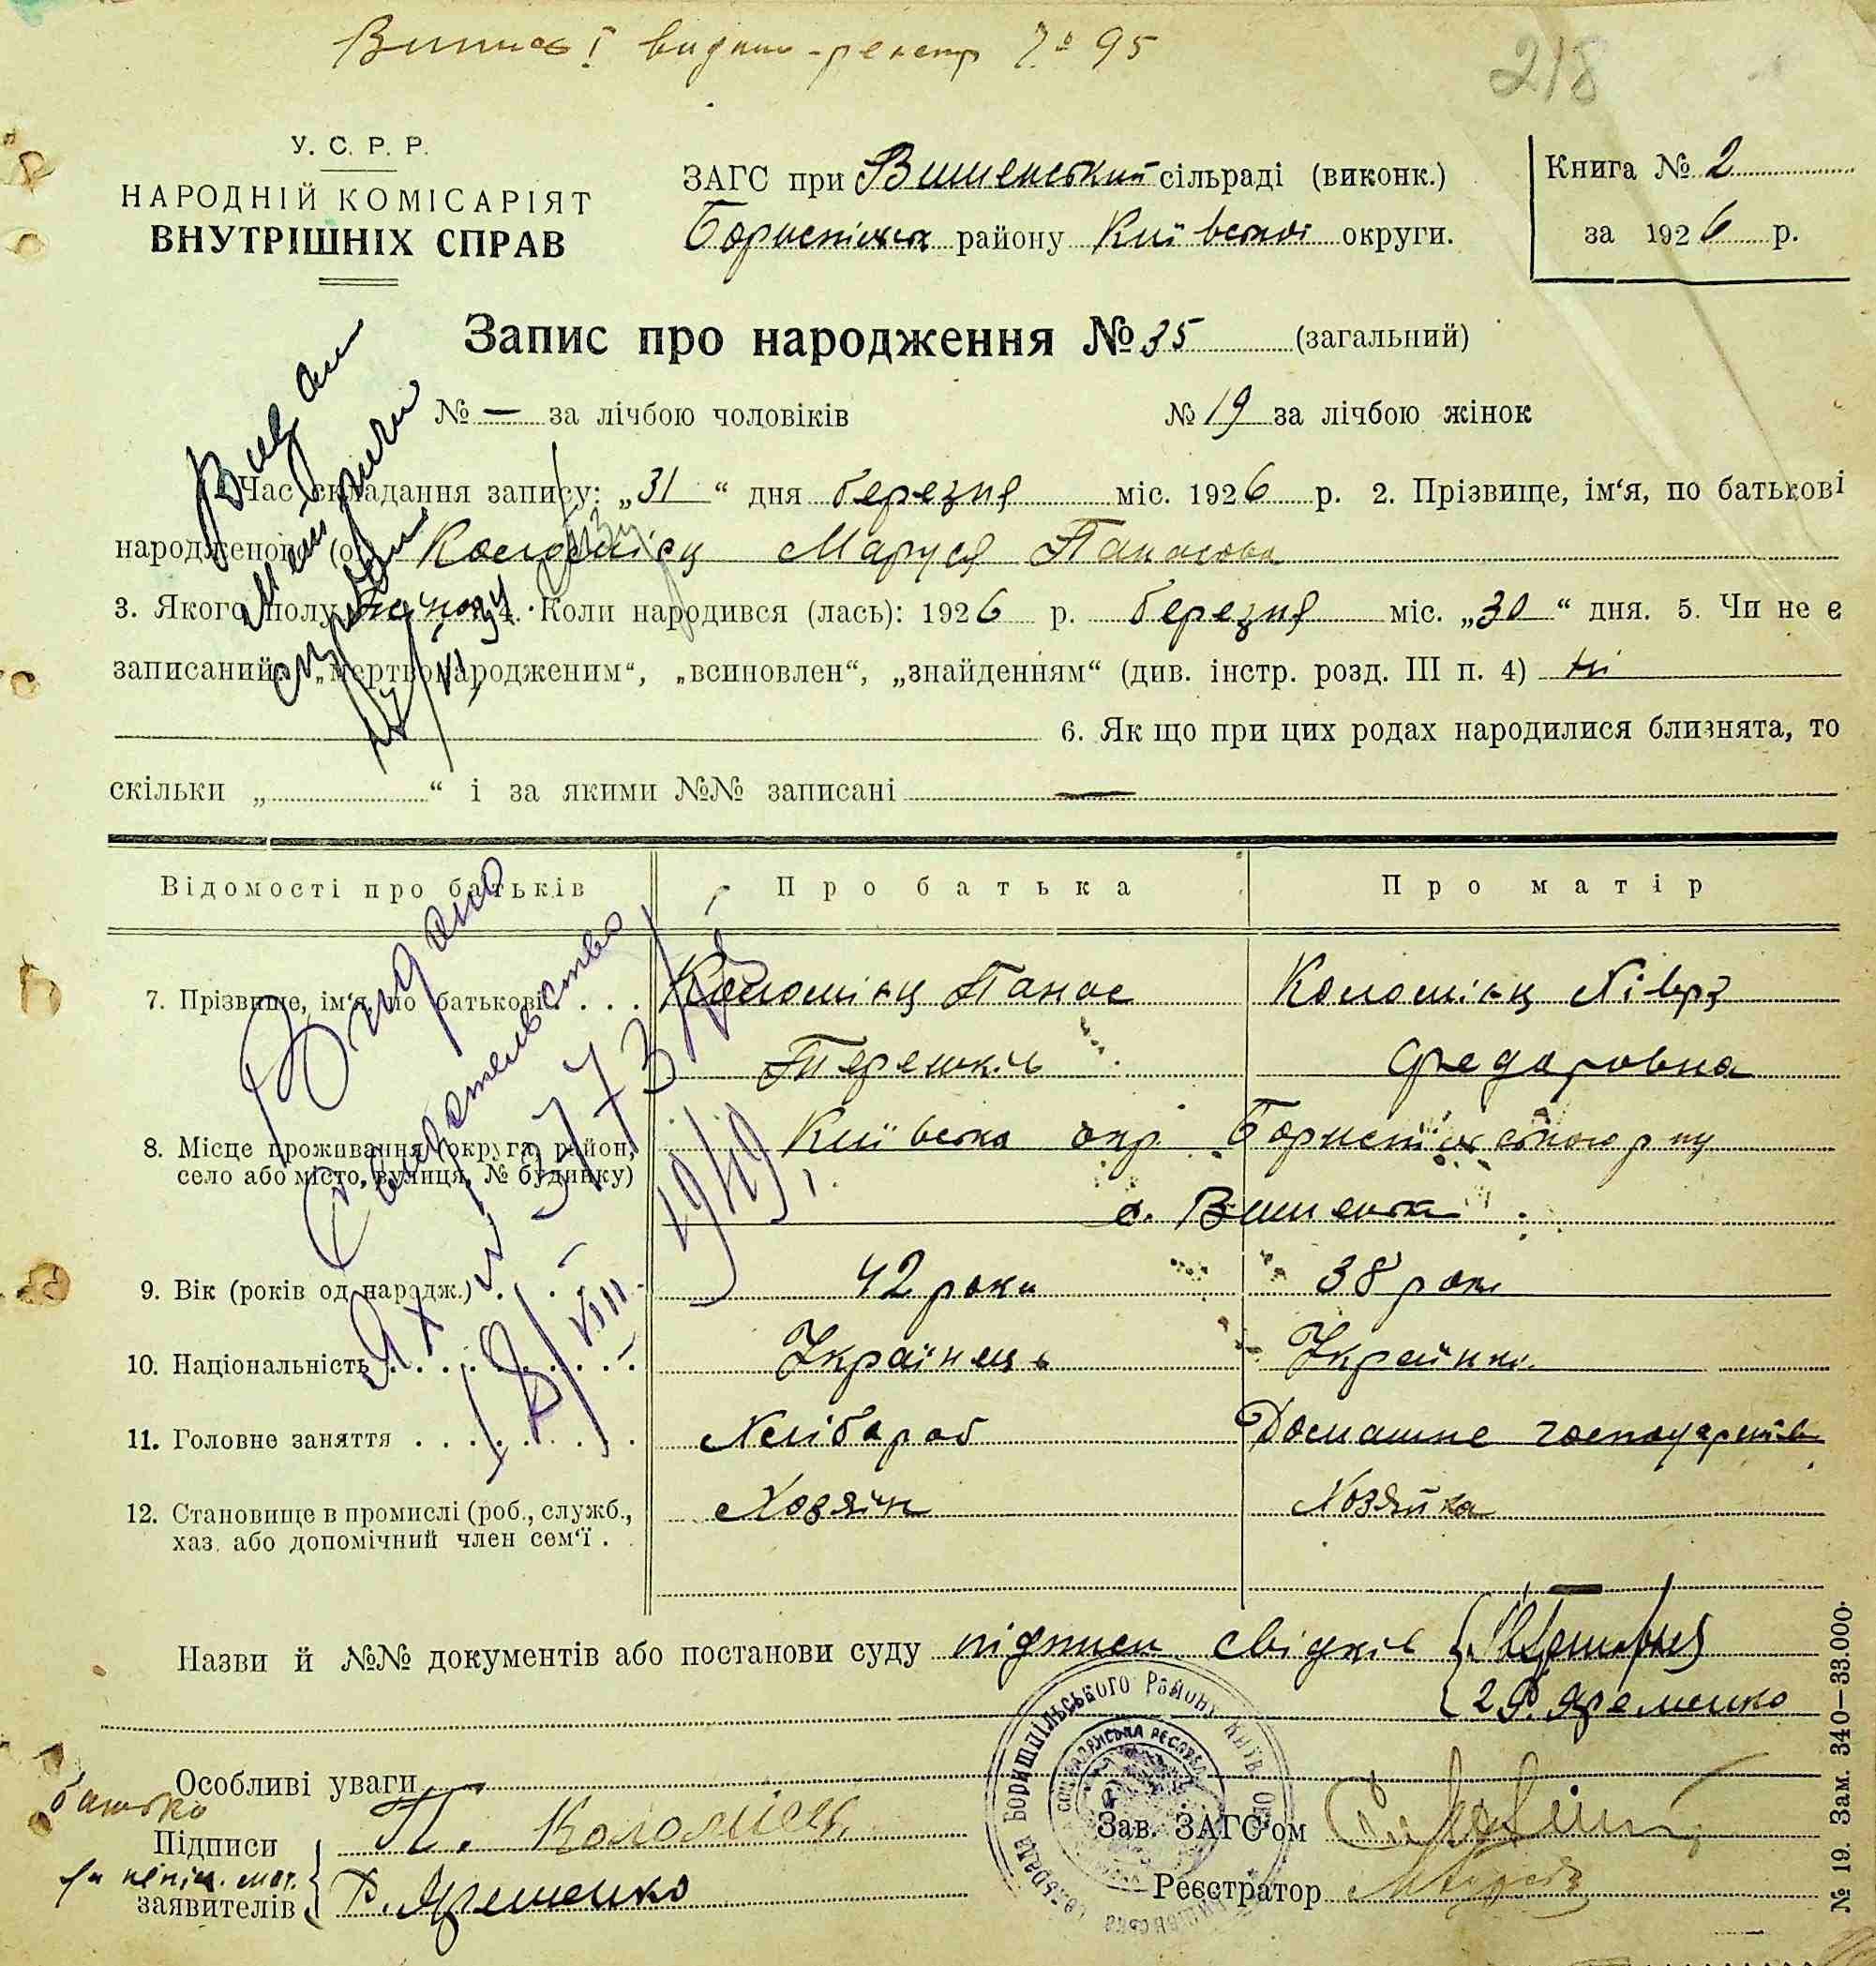 218
У. С. Р. Р.
НАРОДНІЙ КОМІСАРІЯТ
ВНУТРІШНІХ СПРАВ
ЗАГС при Вишенський сільраді (виконк.)
району Київської округи.
Книга № 2
за 1926 р.
Запис про народження № 35 (загальний)
№ — за лічбою чоловіків
№ 19 за лічбою жінок
Час складання запису: „31“ дня березня міс. 1926 р. 2. Прізвище, ім‘я, по батькові
народженого Коломієц Маруся Панасовна
3. Якого полу 4. Коли народився (лась): 1926 р. березня міс. „30“ дня. 5. Чи не є
записаний: „мертвонародженим“, „всиновлен“, „знайденням“ (див. інстр. розд. III п. 4) ні
6. Як що при цих родах народилися близнята, то
скільки „ “ і за якими №№ записані —
Відомості про батьків
Про батька
Про матір
7. Прізвище, ім‘я, по батькові . . .
Коломієц Панас
Коломієц
Терешків
Федоровна
8. Місце проживання (округа, район,
село або місто, вулиця, № будинку)
Київська окр
с. Вишенька
9. Вік (років од народж.)
42 роки
38 рокі
10. Національність
Українець
Українка
11. Головне заняття
Хлібороб
Домашне господарство
12. Становище в промислі (роб., служб.,
хаз. або допомічний член сем‘ї .
Хозяін
Хозяйка
Видано
Свидетельство
1949
Назви й №№ документів або постанови суду підписи свідків
2 Ф. Яременко
Особливі уваги
батько
Підписи
заявителів
П. Коломієць
Ф. Яременко
Зав. ЗАГС‘ом
Реєстратор
№ 19. Зам. 340—33.000.